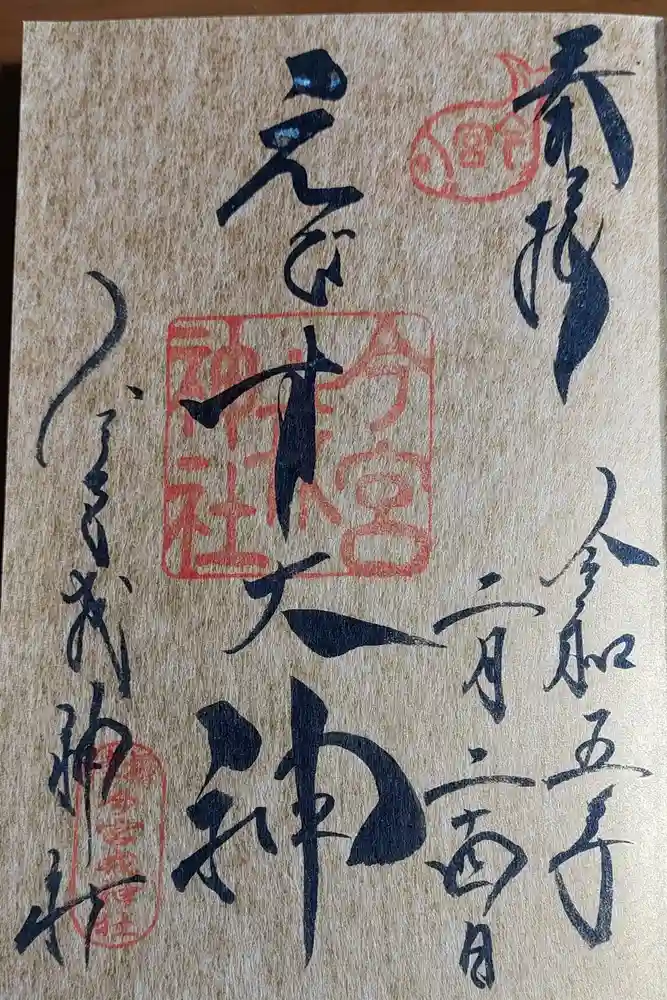 奉拝
令和五年
二月二十四日
えびす大神
今宮戎神社
今宮
今宮
戎
神社
今宮戎神社